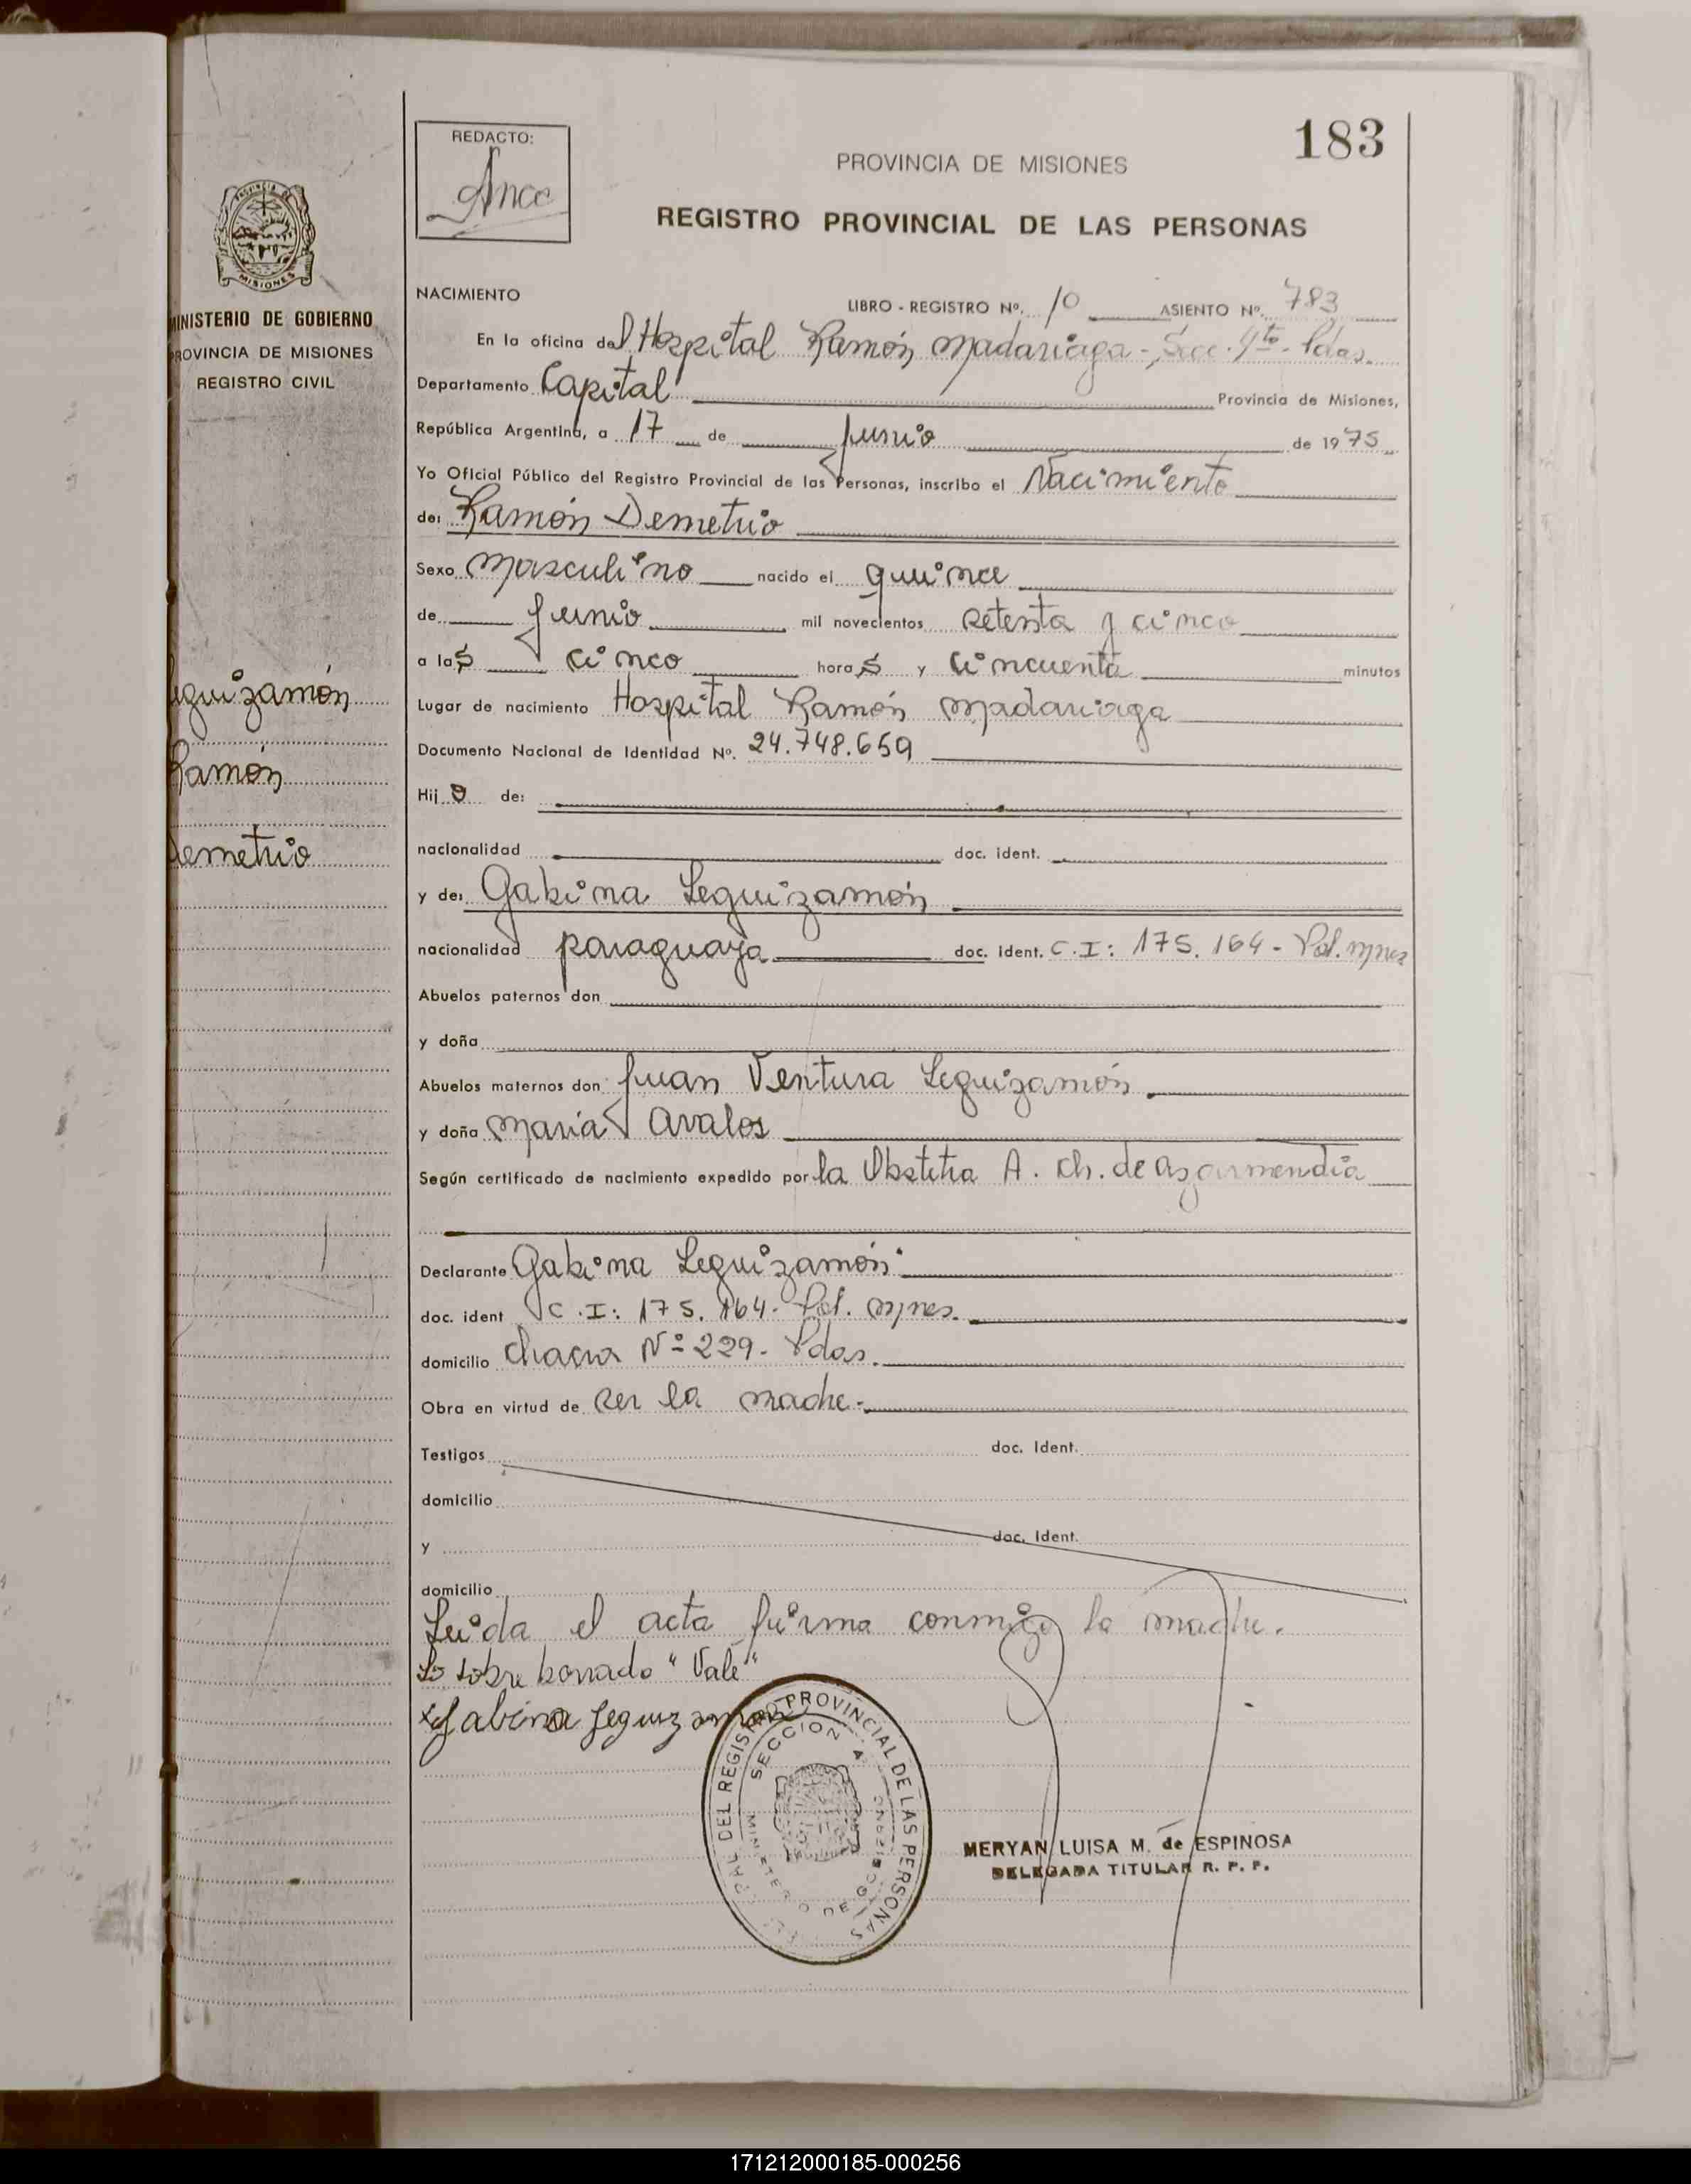 183
REDACTO:
Ance
PROVINCIA DE MISIONES
REGISTRO PROVINCIAL DE LAS PERSONAS
PROVINCIA DE
MISIONES
MINISTERIO DE GOBIERNO
PROVINCIA DE MISIONES
REGISTRO CIVIL
eguizamón
Ramón
Demetrio
NACIMIENTO
LIBRO - REGISTRO Nº. 10 ASIENTO Nº. 783
En la oficina del Hospital Ramón Madariaga - Secc. 4ta - Pdas.
Departamento Capital Provincia de Misiones,
República Argentina, a 17 de junio de 1975
Yo Oficial Público del Registro Provincial de las Personas, inscribo el Nacimiento
de: Ramón Demetrio
Sexo masculino nacido el quince
de junio mil novecientos setenta y cinco
a las cinco horas y cincuenta minutos
Lugar de nacimiento Hospital Ramón Madariaga
Documento Nacional de Identidad Nº. 24.748.659
Hijo de:
nacionalidad doc. ident.
y de: Gabina Leguizamón
nacionalidad paraguaya doc. ident. C.I: 175.164 - Pol. Mnes
Abuelos paternos don
y doña
Abuelos maternos don Juan Ventura Leguizamón
y doña María Avalos
Según certificado de nacimiento expedido por la Obstetra A. Ch. de Azarmendia
Declarante Gabina Leguizamón
doc. ident C.I: 175.164 - Pol. Mnes.
domicilio chacra Nº 229 - Pdas.
Obra en virtud de ser la madre.
Testigos doc. Ident.
domicilio
y doc. Ident.
domicilio
Leída el acta firma conmigo la madre.
Lo sobre borrado "Vale"
Gabina Leguizamon
DEL REGISTRO PROVINCIAL DE LAS PERSONAS
SECCION 4
MINISTERIO DE GOBIERNO
MERYAN LUISA M. de ESPINOSA
DELEGADA TITULAR R. P. P.
171212000185-000256